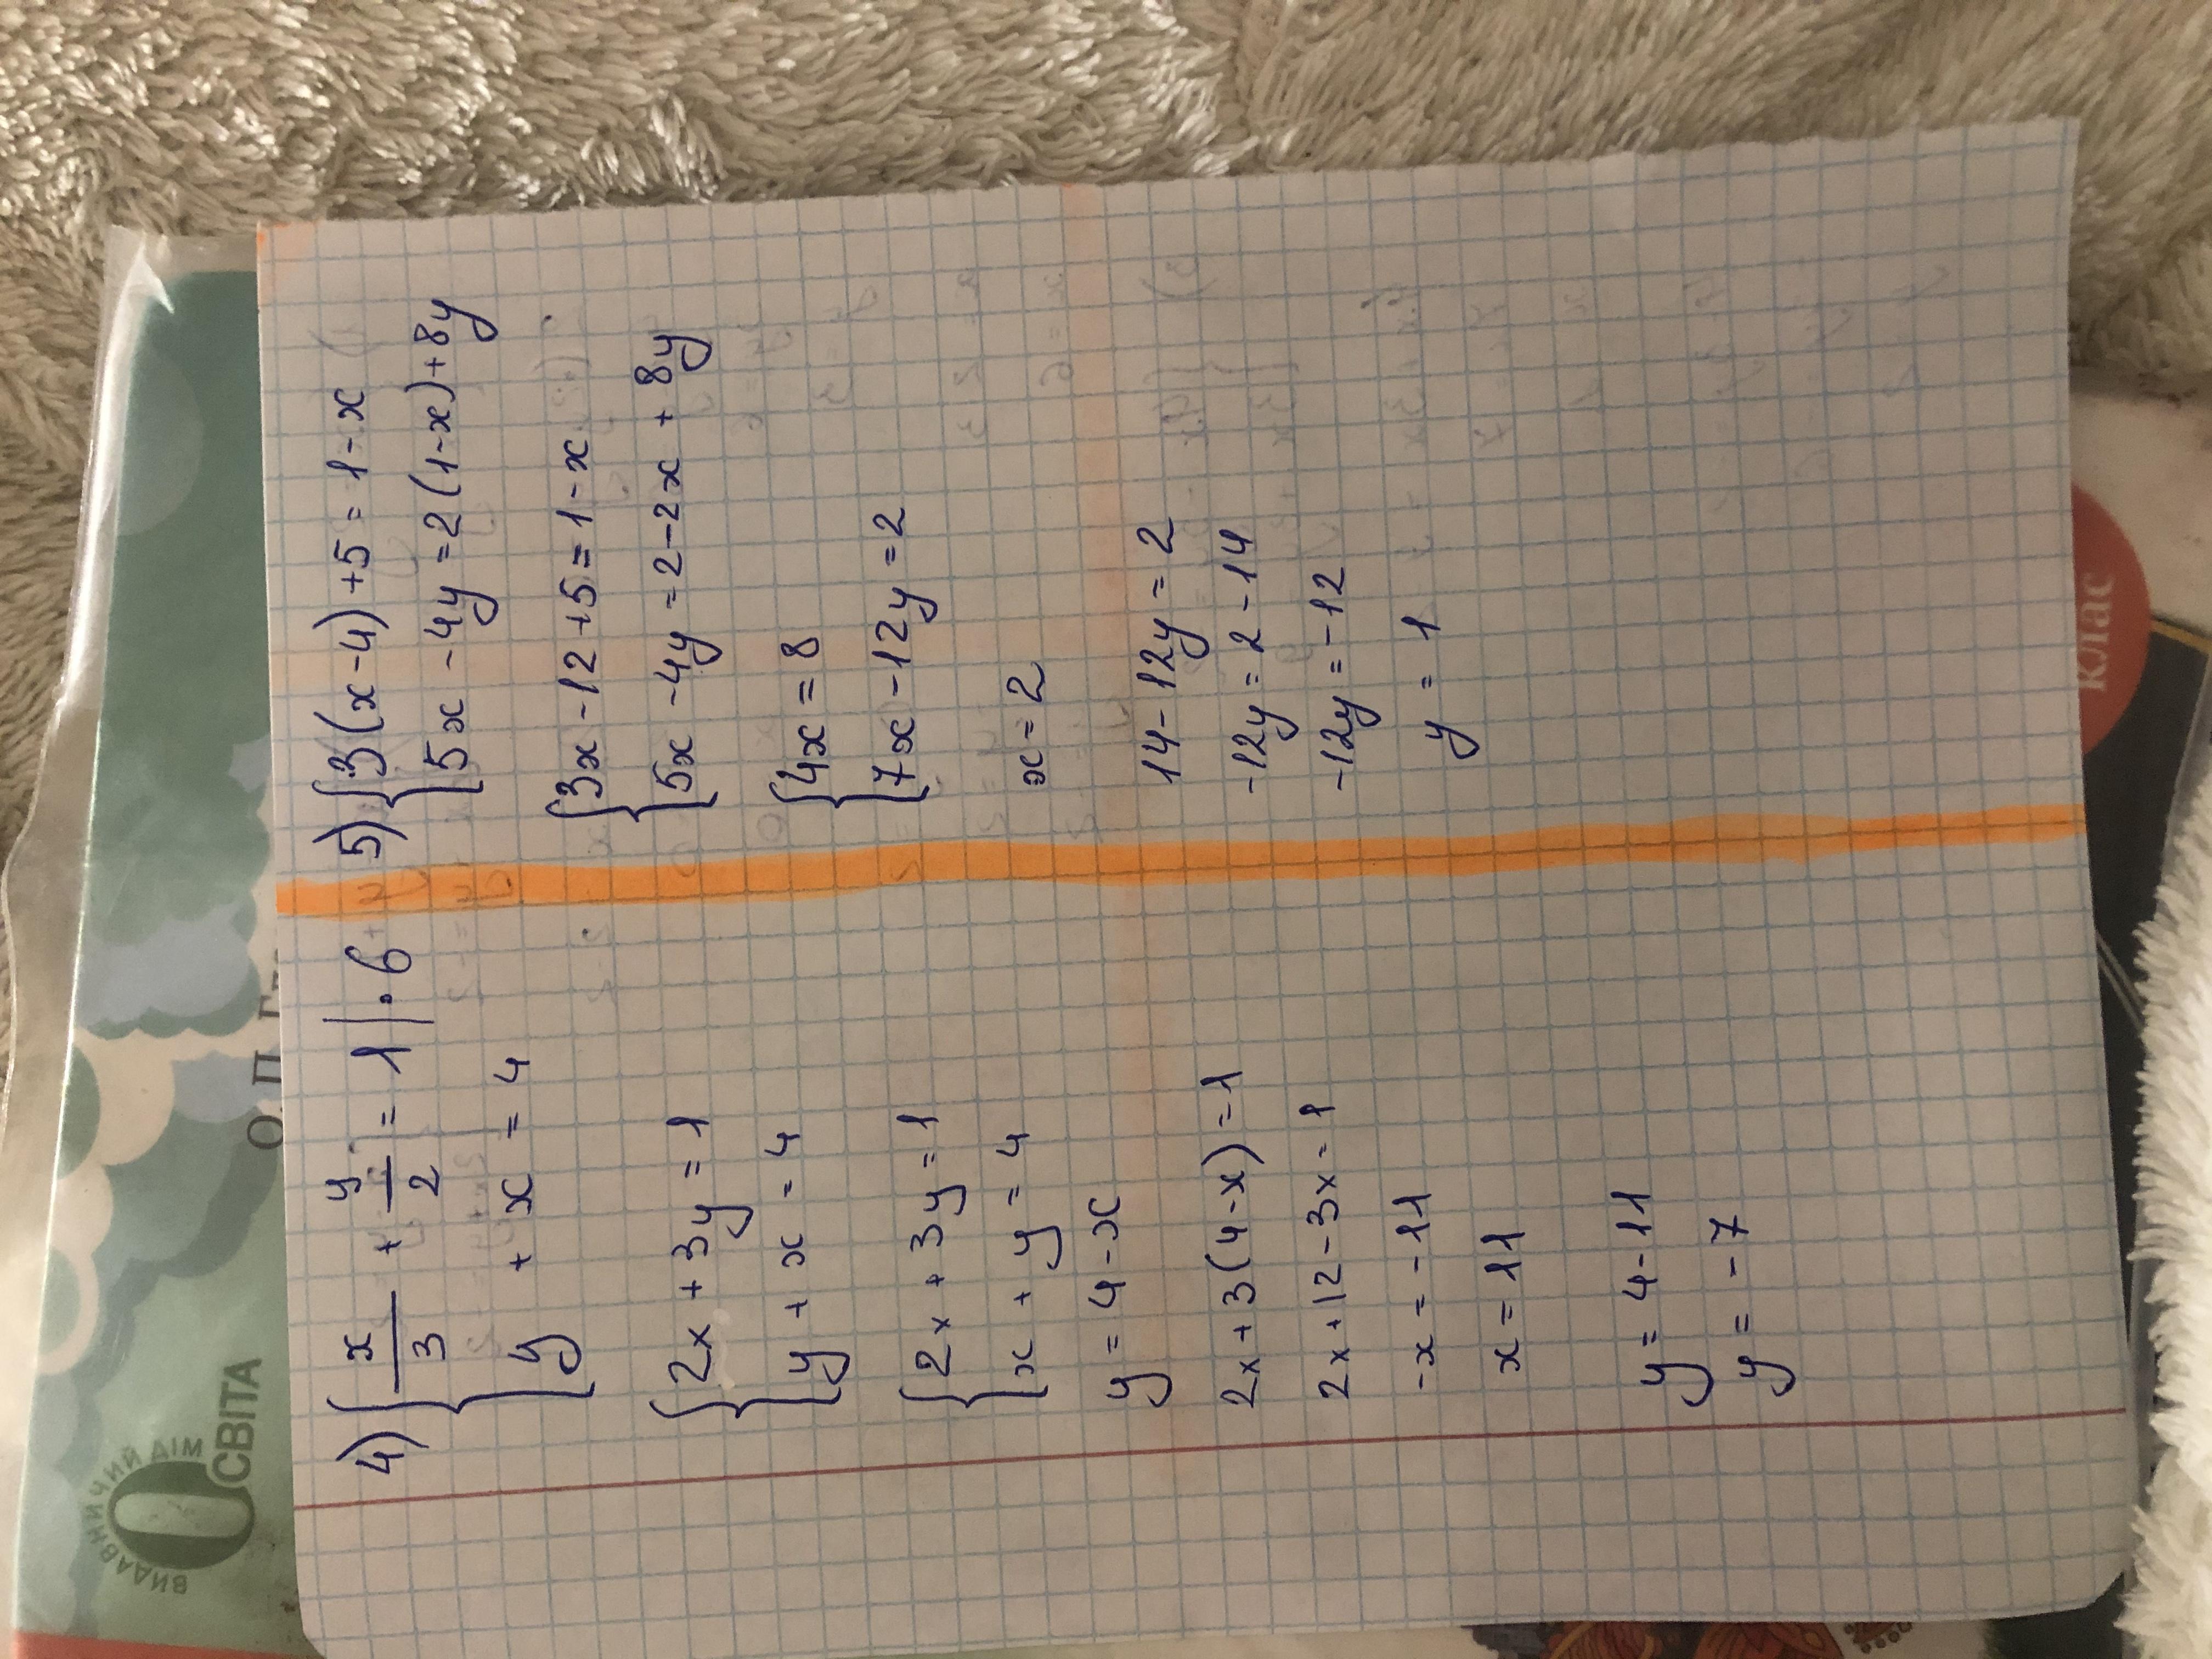 4) { x/3 + y/2 = 1 | · 6
y + x = 4
{ 2x + 3y = 1
y + x = 4
{ 2x + 3y = 1
x + y = 4
y = 4 - x
2x + 3(4-x) = 1
2x + 12 - 3x = 1
-x = -11
x = 11
y = 4 - 11
y = -7
5) { 3(x-4) + 5 = 1 - x
5x - 4y = 2(1-x) + 8y
{ 3x - 12 + 5 = 1 - x
5x - 4y = 2 - 2x + 8y
{ 4x = 8
7x - 12y = 2
x = 2
14 - 12y = 2
-12y = 2 - 14
-12y = -12
y = 1
ВИДАВНИЧИЙ ДІМ
ОСВІТА
О.П.
клас